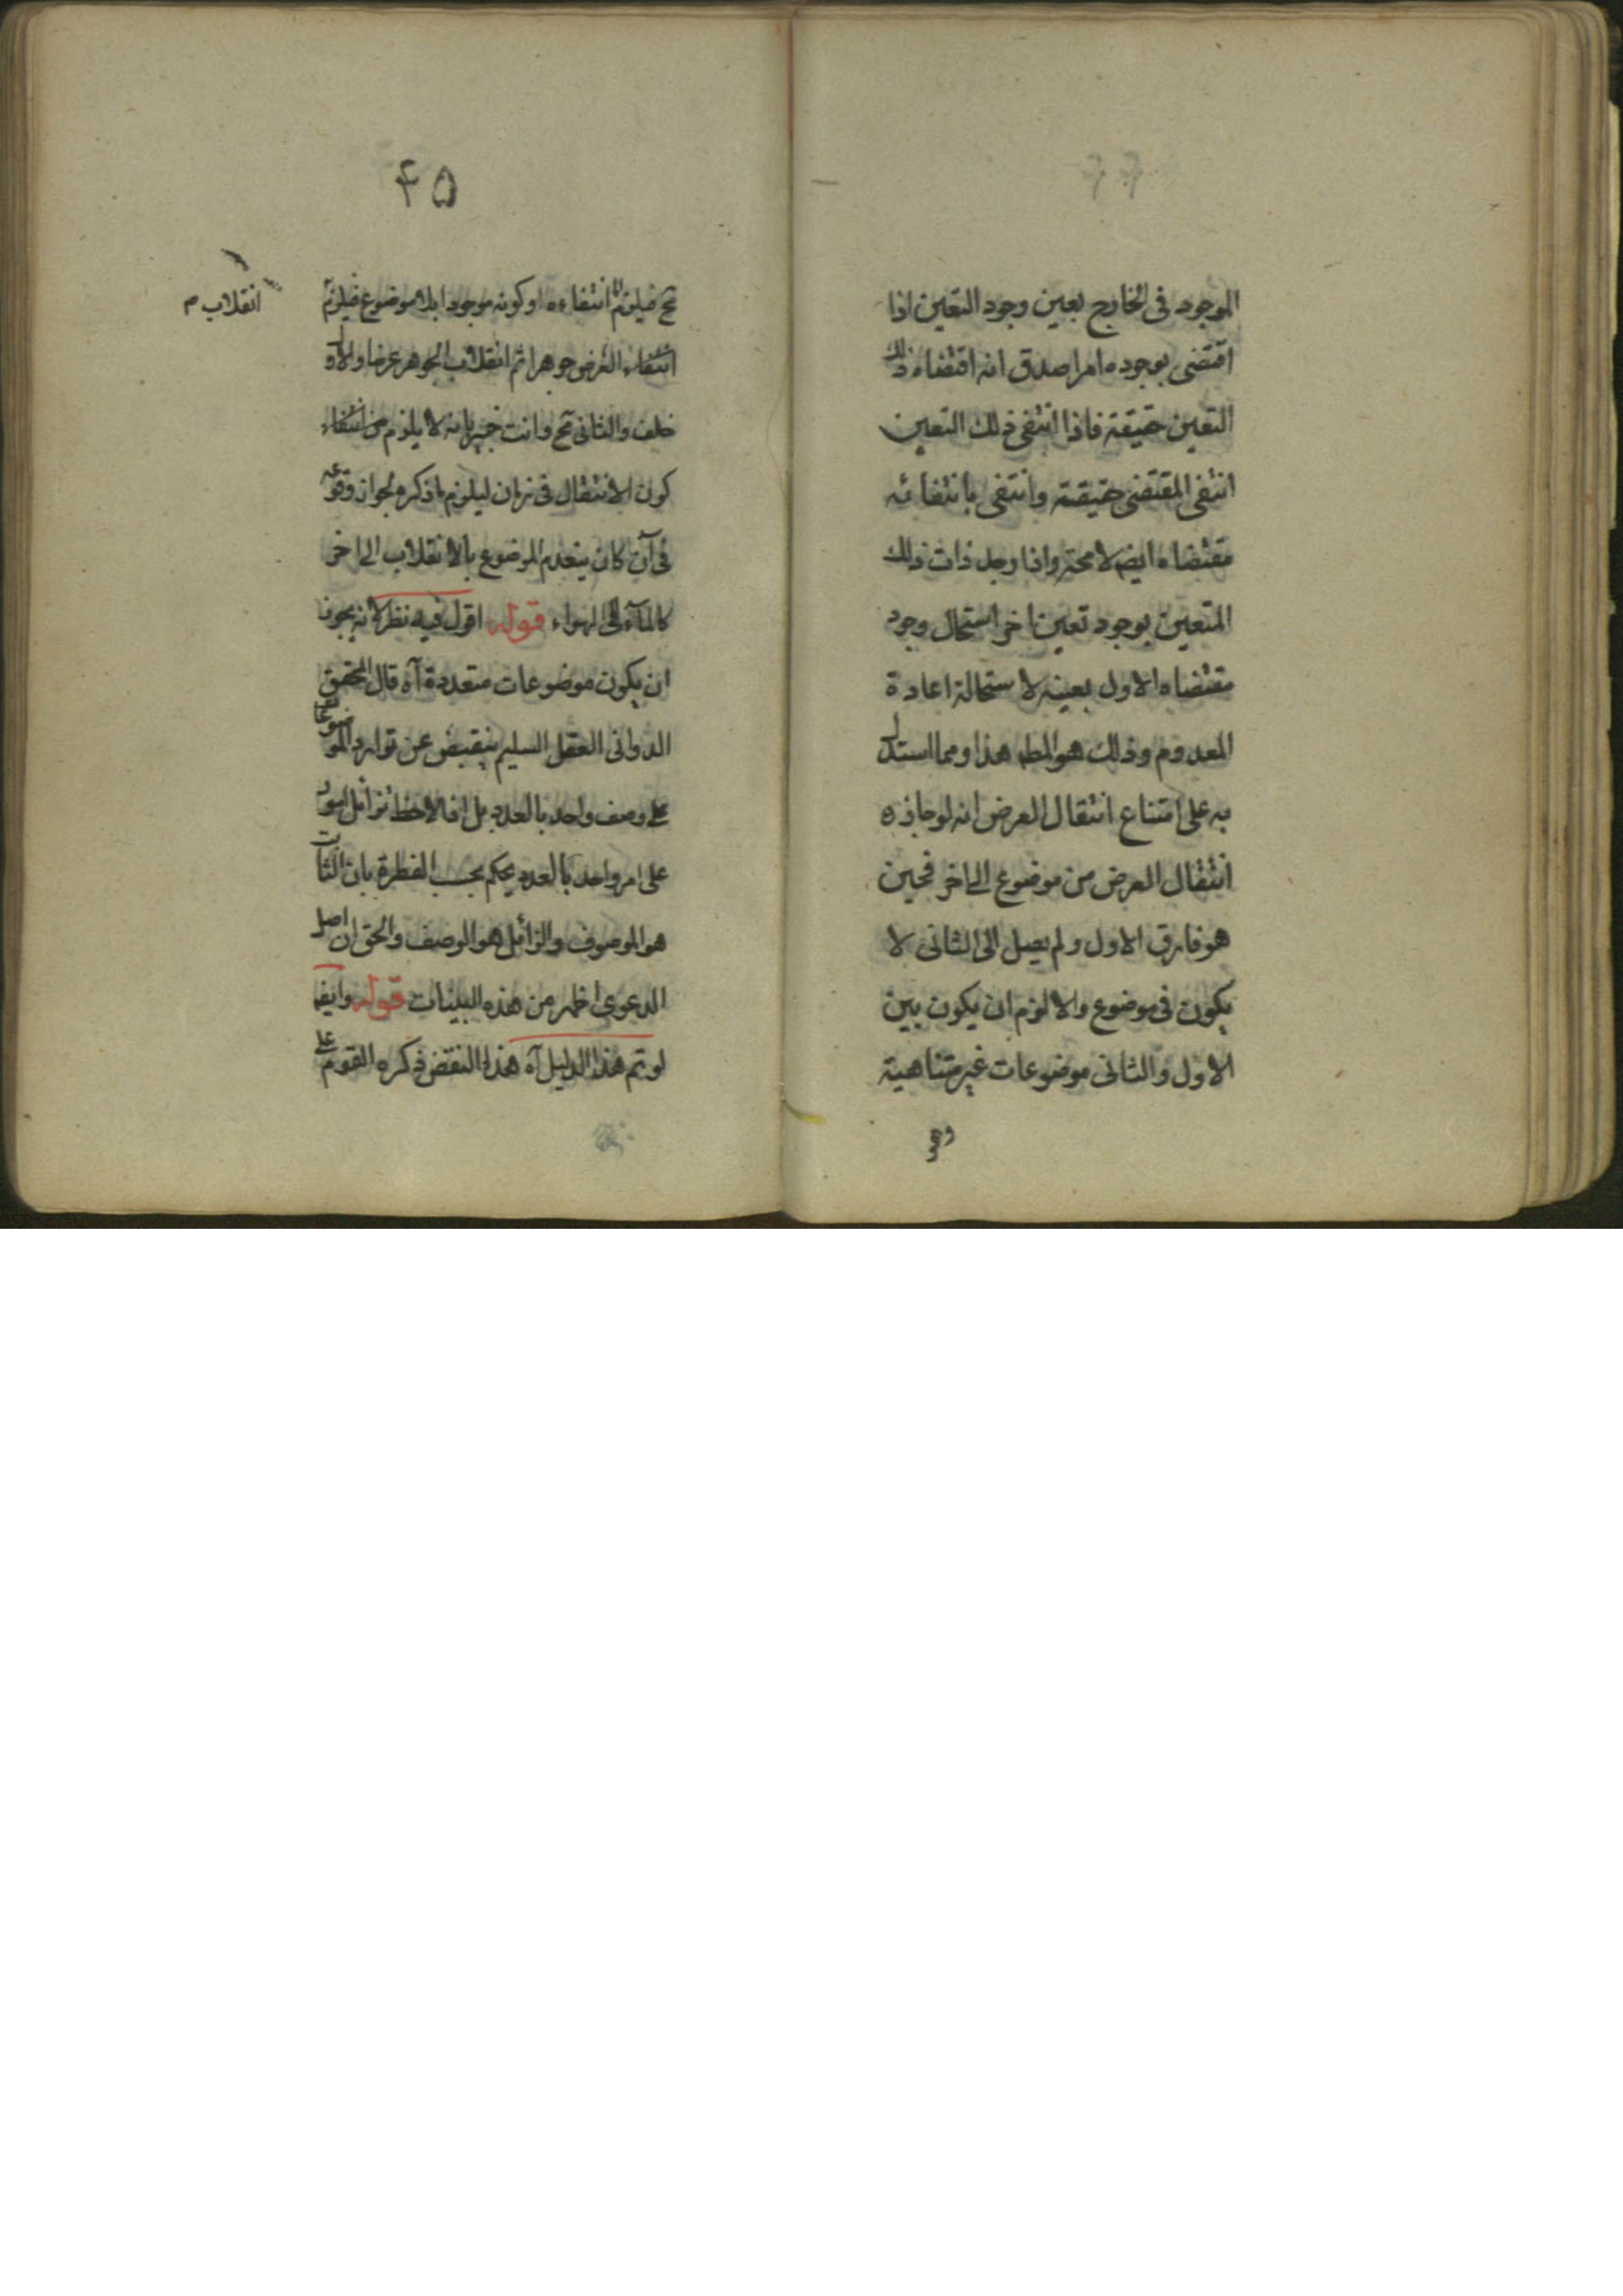 ۴۴
الموجود فى الخارج بعين وجود التعين اذا
اقتضى بوجوده امرا صدق انه اقتضاه ذلك
التعين حقيقة فاذا انتفى ذلك التعين
انتفى المقتضى حقيقة وانتفى بانتفائه
مقتضاه ايضا لامحة واذا وجد ذات ذلك
المتعين بوجود تعين اخر استحال وجود
مقتضاه الاول بعينه لاستحالة اعادة
المعدوم وذلك هو المط هذا ومما استدل
به على امتناع انتقال العرض انه لو جاز ه
انتقال العرض من موضوع الى اخر فحين
هو فارق الاول ولم يصل الى الثانى لا
يكون فى موضوع والا لزم ان يكون بين
الاول والثانى موضوعات غير متناهية
وهو
۴۵
مح فيلزم انتفاءه او كونه موجودا بلا موضوع فيلزم
انتفاء العرض جوهرا ثم انقلاب الجوهر عرضا والاول
خلف والثانى مح وانت خبير بانه لا يلزم من انتفاء
كون الانتقال فى زمان ليلزم ما ذكره لجواز وقوعه
فى آن كان ينعدم الموضوع بالانقلاب الى اخر
كالماء الى الهواء قوله اقول فيه نظر لانه يجوز
ان يكون موضوعات متعددة آه قال المحقق
الدوانى العقل السليم ينقبض عن توارد الموضوعات
على وصف واحد بالعدد بل اذا لاحظ تزائل امور
على امر واحد بالعدد يحكم بحسب الفطرة بان الثابت
هو الموصوف والزائل هو الوصف والحق ان اصل
الدعوى اظهر من هذه البينات قوله وايضا
لو تم هذا الدليل آه هذا النقض ذكره القوم على
انقلاب م